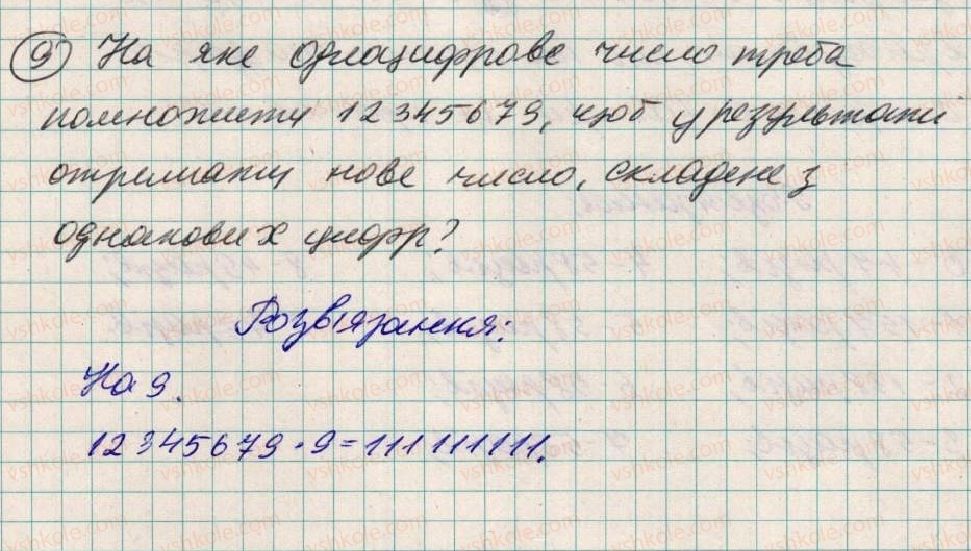 9) На яке одноцифрове число треба
помножити 12345679, щоб у результаті
отримати нове число, складене з
однакових цифр?
Розв'язання:
На 9.
12345679 · 9 = 111 111 111.